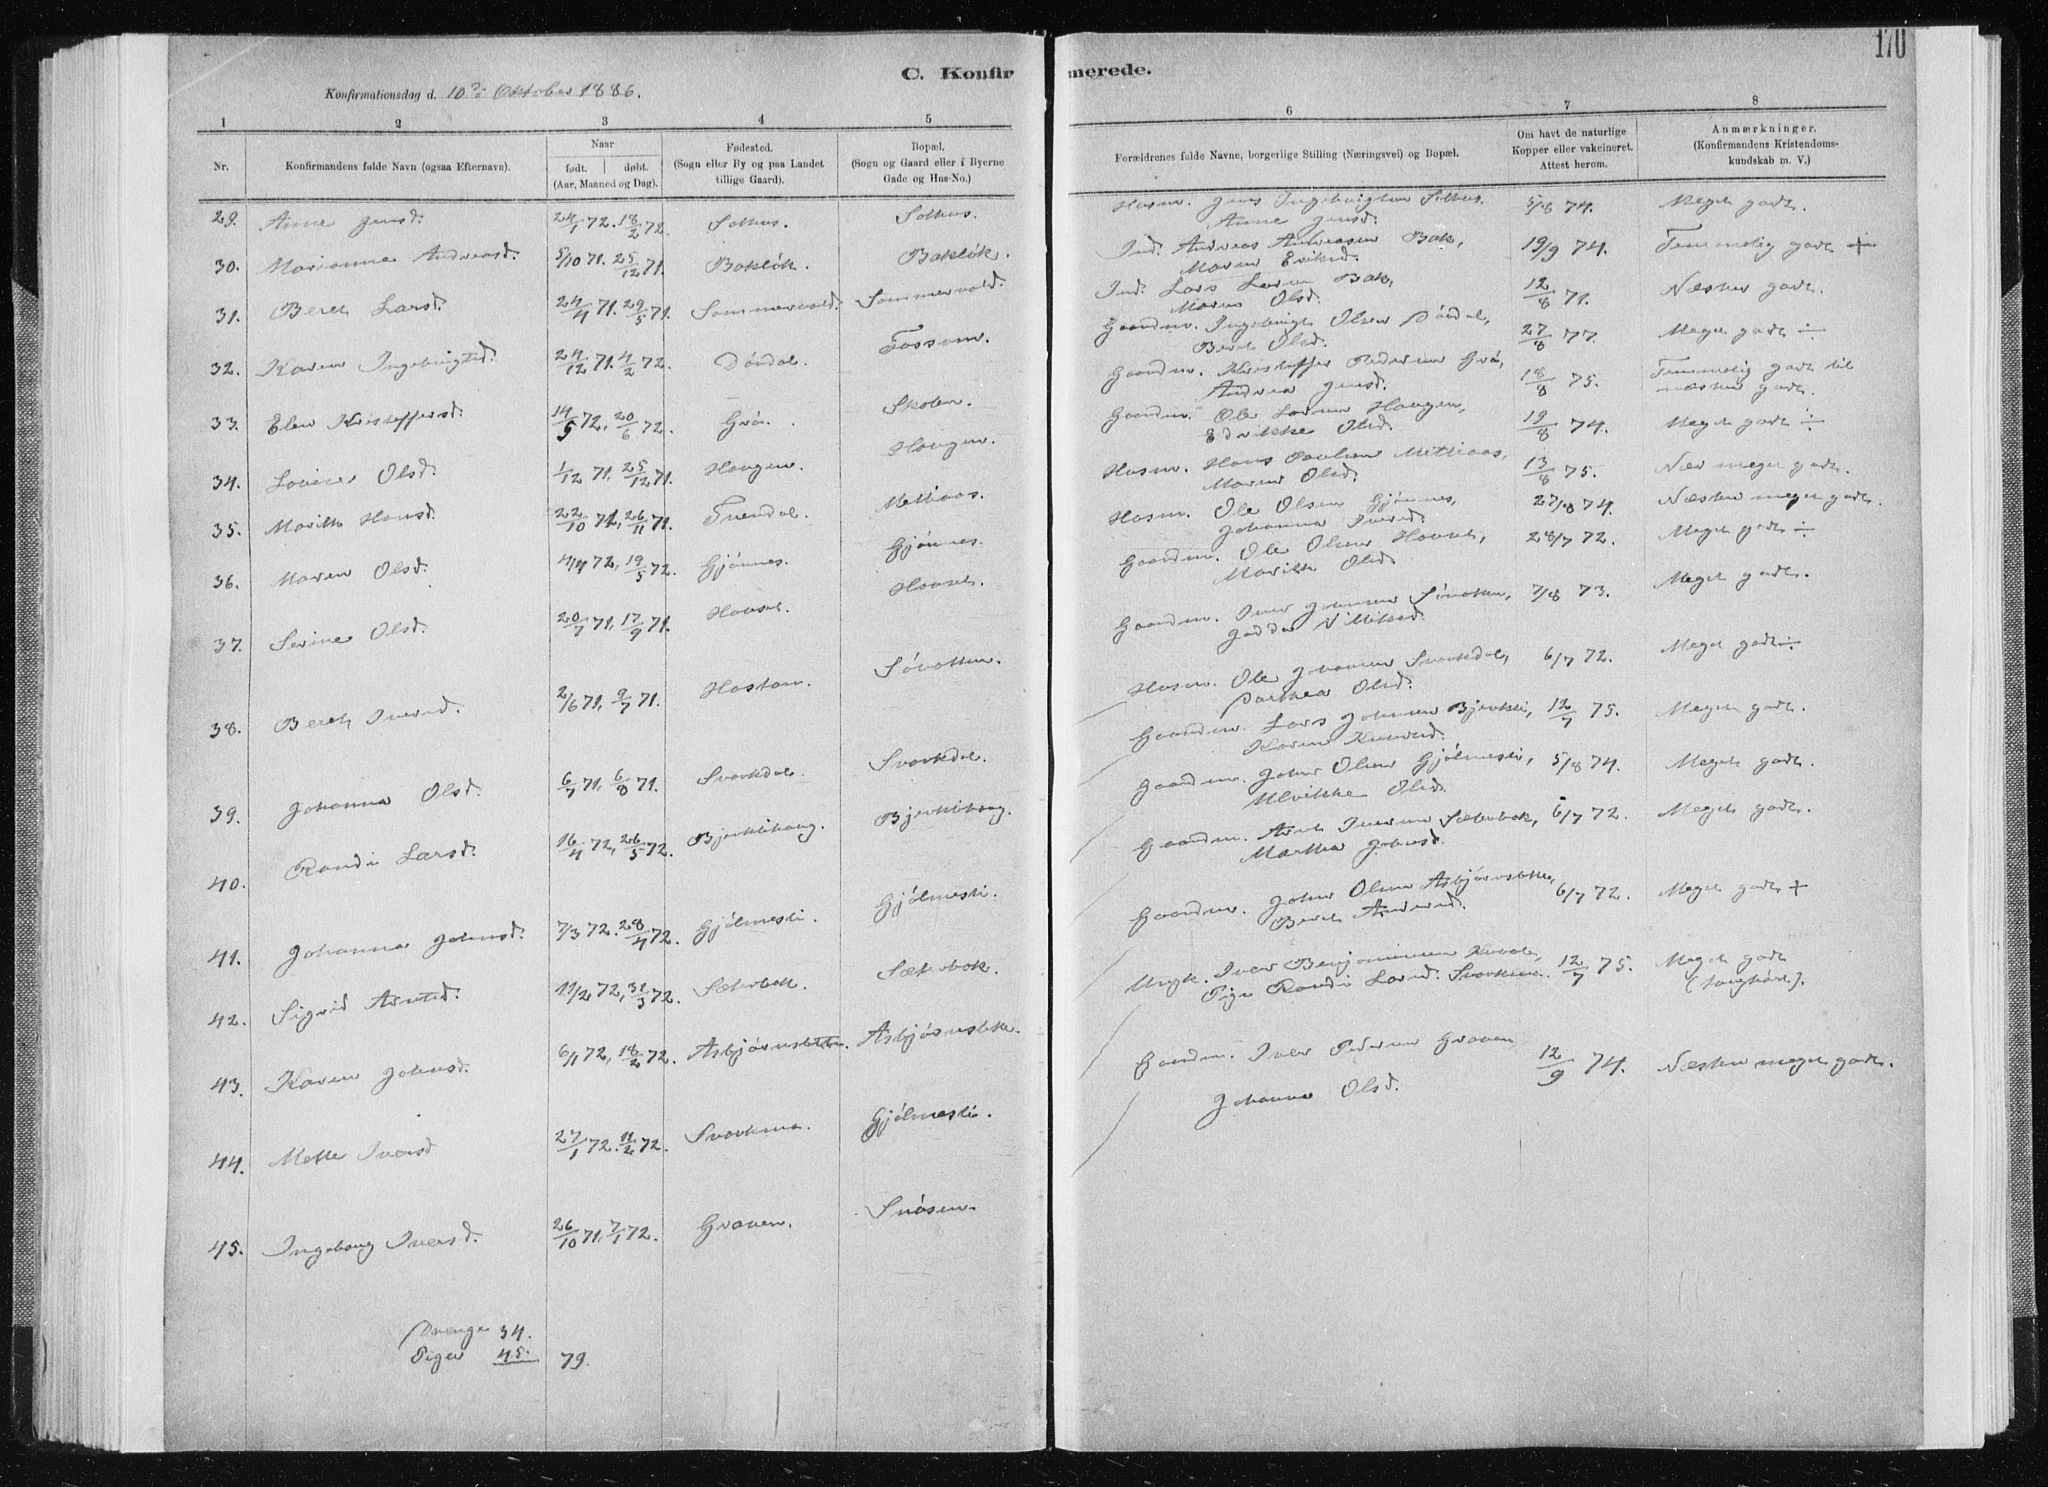 170
C. Konfirmerede.
Konfirmationsdag d. 10de Oktober 1886.
1 2 3 4 5 6 7 8
Nr. Konfirmandens fulde Navn (ogsaa Efternavn). Naar født. døbt. (Aar, Maaned og Dag). Fødested. (Sogn eller By og paa Landet tillige Gaard). Bopæl. (Sogn og Gaard eller i Byerne Gade og Hus-No.) Forældrenes fulde Navne, borgerlige Stilling (Næringsvei) og Bopæl. Om havt de naturlige Kopper eller vakcineret. Attest herom. Anmærkninger. (Konfirmandens Kristendomskundskab m. V.)
29. Anne Jensd. 24/1 72. 18/2 72. Solhus. Solhus. Husm. Jens Ingebrigtsen Solhus. 5/8 74. Meget godt.
Anne Jensd.
30. Marianne Andreasd. 5/10 71. 25/12 71. Bakløk. Bakløk. Ind. Andreas Andreasen Bak, 19/9 74. Temmelig godt +
Maren Eriksd.
31. Beret Larsd. 24/4 71. 29/5 71. Sommervold. Sommervold. Ind. Lars Larsen Bak, 12/8 71. Næsten godt.
Maren Olsd.
32. Karen Ingebrigtsd. 24/12 71. 4/2 72. Dørdal. Fossom. Gaardm. Ingebrigt Olsen Dørdal, 27/8 77. Meget godt ÷
Beret Olsd.
33. Elen Kristoffersd. 14/5 72, 20/6 72. Grø. Skolen. Gaardm. Kristoffer Pedersen Grø, 18/8 75. Temmelig godt til næsten godt.
Andrea Jensd.
34. Lovise Olsd. 1/12 71, 25/12 71. Haugen. Haugen. Gaardm. Ole Larsen Haugen, 19/8 74. Meget godt ÷
Edvikke Olsd.
35. Marith Hansd. 22/10 71, 26/11 71. Truendal. Mellaas. Husm. Hans Paulsen Mellaas, 13/8 75. Nær meget godt.
Maren Olsd.
36. Maren Olsd. 4/4 72, 19/5 72. Gjønnes. Gjønnes. Husm. Ole Olsen Gjønnes, 27/8 74. Næsten meget godt.
Johanna Iversd.
37. Serine Olsd. 20/7 71, 17/9 71. Hovsel. Hovsel. Gaardm. Ole Olsen Hovsel, 28/7 72. Meget godt ÷
Marith Olsd.
38. Beret Iversd. 2/6 71, 9/7 71. Hoston. Søvatten. Gaardm. Iver Johnsen Søvatten, 7/8 73. Meget godt.
39. Johanna Olsd. 6/7 71, 6/8 71. Svorkdal. Svorkdal. Husm. Ole Johansen Svorkdal, 6/7 72. Meget godt ÷
Parthea Olsd.
40. Randi Larsd. 16/4 72, 26/5 72. Bjerklihaug. Bjerklihaug. Gaardm. Lars Johnsen Bjerkli, 12/7 75. Meget godt.
Karen Knursd.
41. Johanna Johnsd. 7/3 72. 28/4 72. Gjølmesli. Gjølmesli. Gaardm. John Olsen Gjølmesli, 5/8 74. Meget godt.
Ulrikke Olsd.
42. Sigrid Arntsd. 11/2 72, 31/3 72. Sæterbok. Sæterbok. Gaardm. Arnt Iversen Sæterbok, 6/7 72. Meget godt.
Martha Johnsd.
43. Karen Johnsd. 6/1 72, 18/2 72. Asbjørnslette. Asbjørnslette. Gaardm. John Olsen Asbjørnslette, 6/7 72. Meget godt +
Beret Andersd.
44. Mette Iversd. 27/1 72. 11/2 72. Svorkmo. Gjølmesli. Ungk. Iver Benjaminsen Kvaale, 12/7 75. Meget godt (tunghørt).
Pige Randi Larsd. Svorkmo.
45. Ingeborg Iversd. 26/10 71, 7/1 72. Graven. Snøsen. Gaardm. Iver Pedersen Graven 12/9 74. Næsten meget godt.
Johanna Olsd.
Drenge 34.
Piger 45. 79.